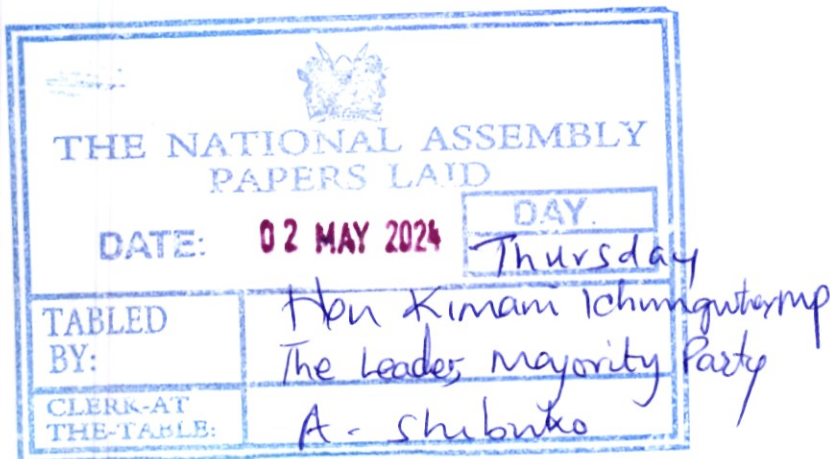 THE NATIONAL ASSEMBLY
PAPERS LAID
DATE: 02 MAY 2024 DAY.
Thursday
TABLED BY: Hon Kimani Ichungwah, MP
The Leader, Majority Party
CLERK-AT THE-TABLE: A. Shibuko